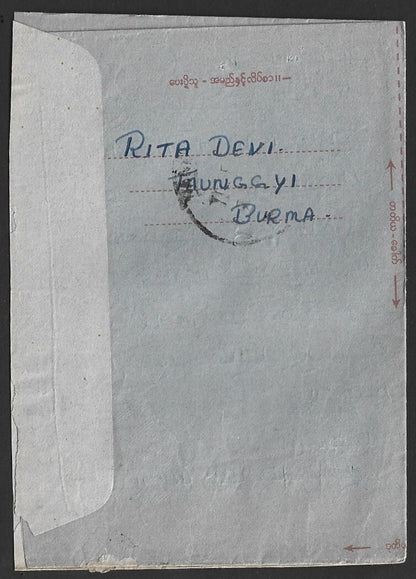 ပေးပို့သူ - အမည်နှင့်လိပ်စာ။
RITA DEVI.
TAUNGGYI
BURMA.